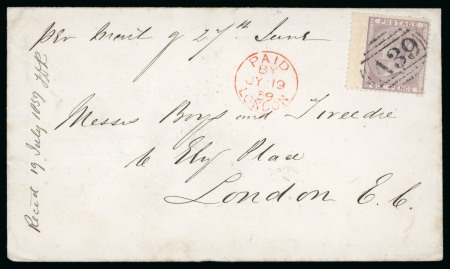 per mail of 27th June
PAID
BY
JY 19
59
LONDON
POSTAGE
A39
SIX PENCE
Messrs Boys and Tweedie
6 Ely Place
London E.C.
Reced 19 July 1859